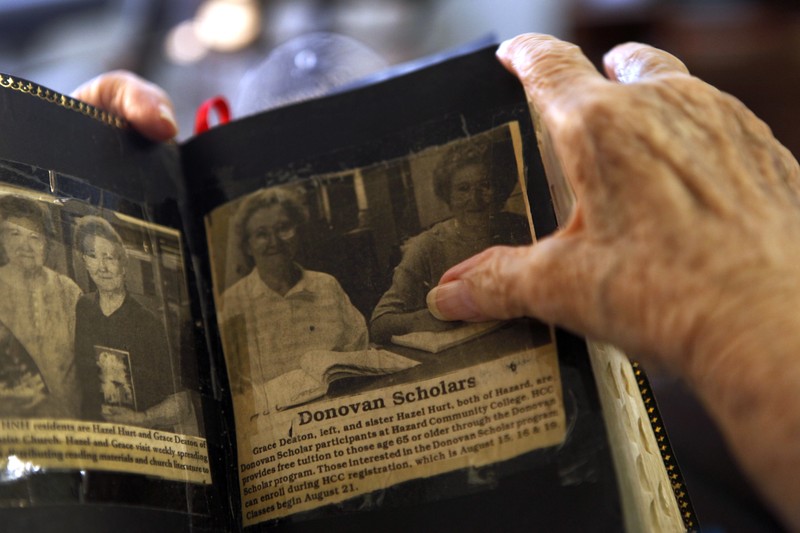 HNH residents are Hazel Hurt and Grace Deaton of
Church. Hazel and Grace visit weekly, spending
reading materials and church literature to
Donovan Scholars
Grace Deaton, left, and sister Hazel Hurt, both of Hazard, are
Donovan Scholar participants at Hazard Community College. HCC
provides free tuition to those age 65 or older through the Donovan
Scholar program. Those interested in the Donovan Scholar program
can enroll during HCC registration, which is August 15, 16 & 19.
Classes begin August 21.